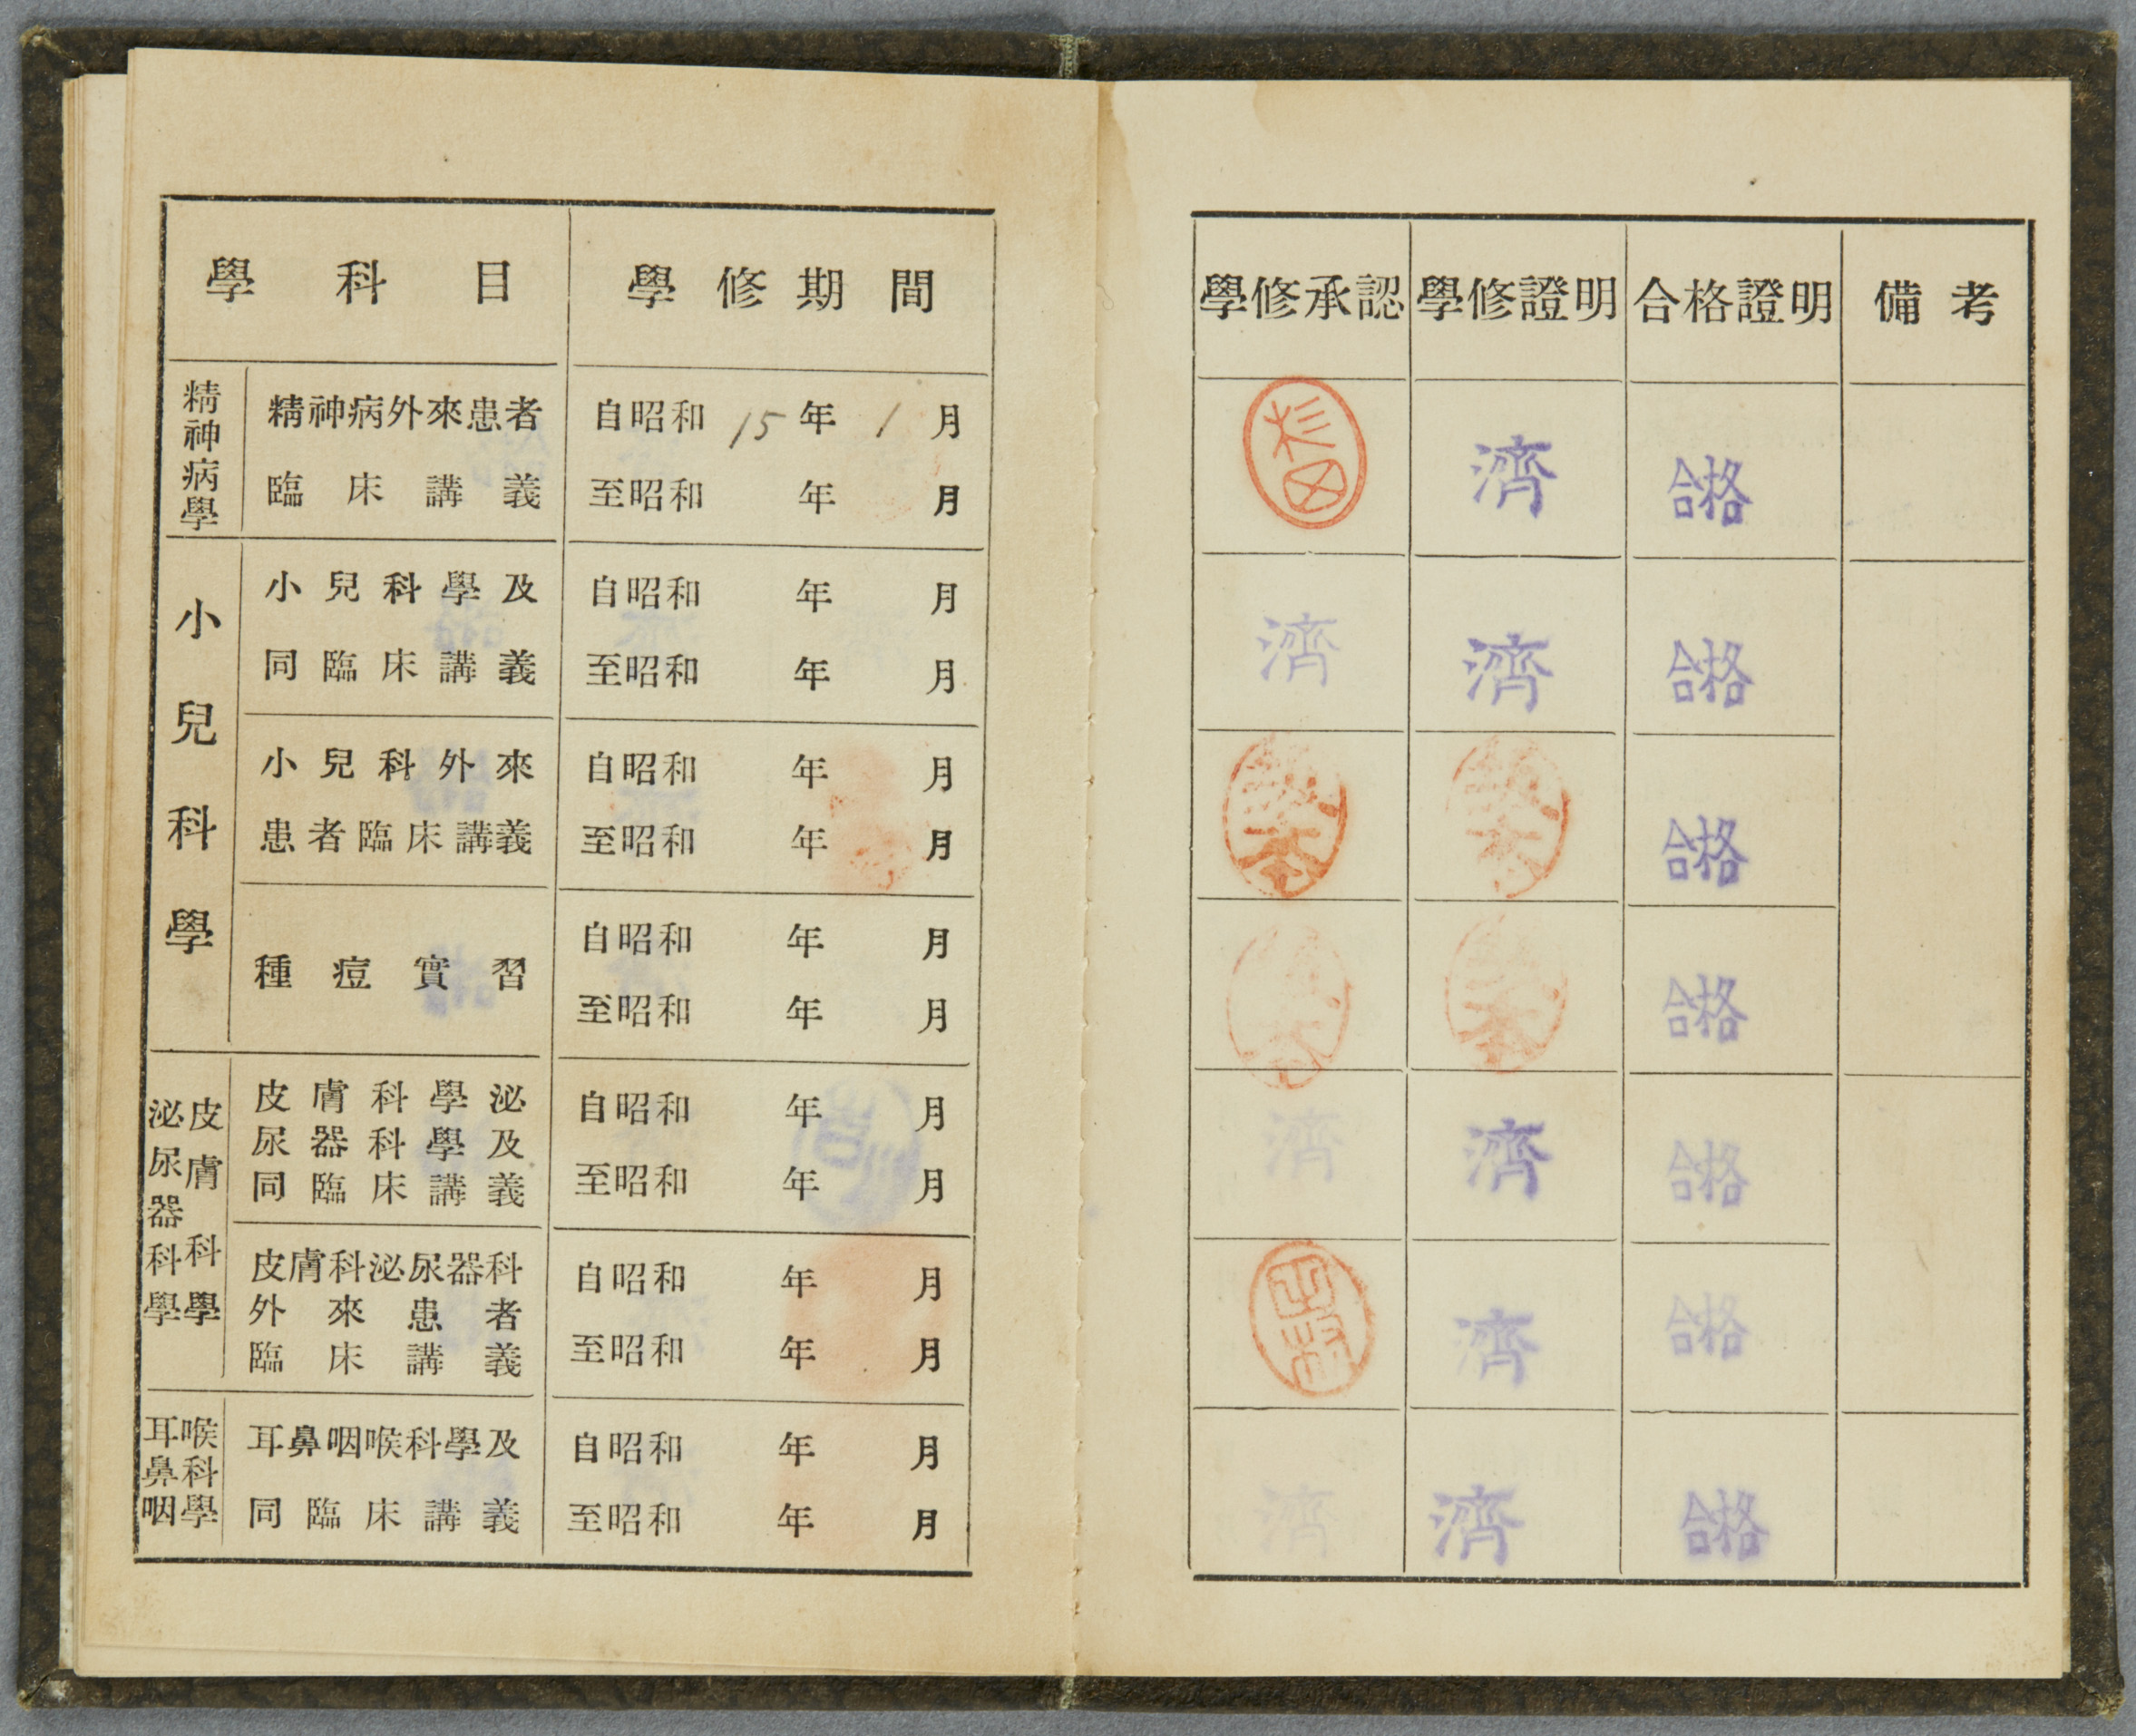 學科目 學修期間
精神病學
精神病外來患者
臨床講義
自昭和 15 年 1 月
至昭和 年 月
小兒科學
小兒科學及
同臨床講義
自昭和 年 月
至昭和 年 月
小兒科外來
患者臨床講義
自昭和 年 月
至昭和 年 月
種痘實習
自昭和 年 月
至昭和 年 月
皮膚科學
泌尿器科學
皮膚科學泌
尿器科學及
同臨床講義
自昭和 年 月
至昭和 年 月
皮膚科泌尿器科
外來患者
臨床講義
自昭和 年 月
至昭和 年 月
耳鼻咽
喉科學
耳鼻咽喉科學及
同臨床講義
自昭和 年 月
至昭和 年 月
學修承認 學修證明 合格證明 備考
濟 合格
濟 濟 合格
合格
合格
濟 濟 合格
濟 合格
濟 濟 合格